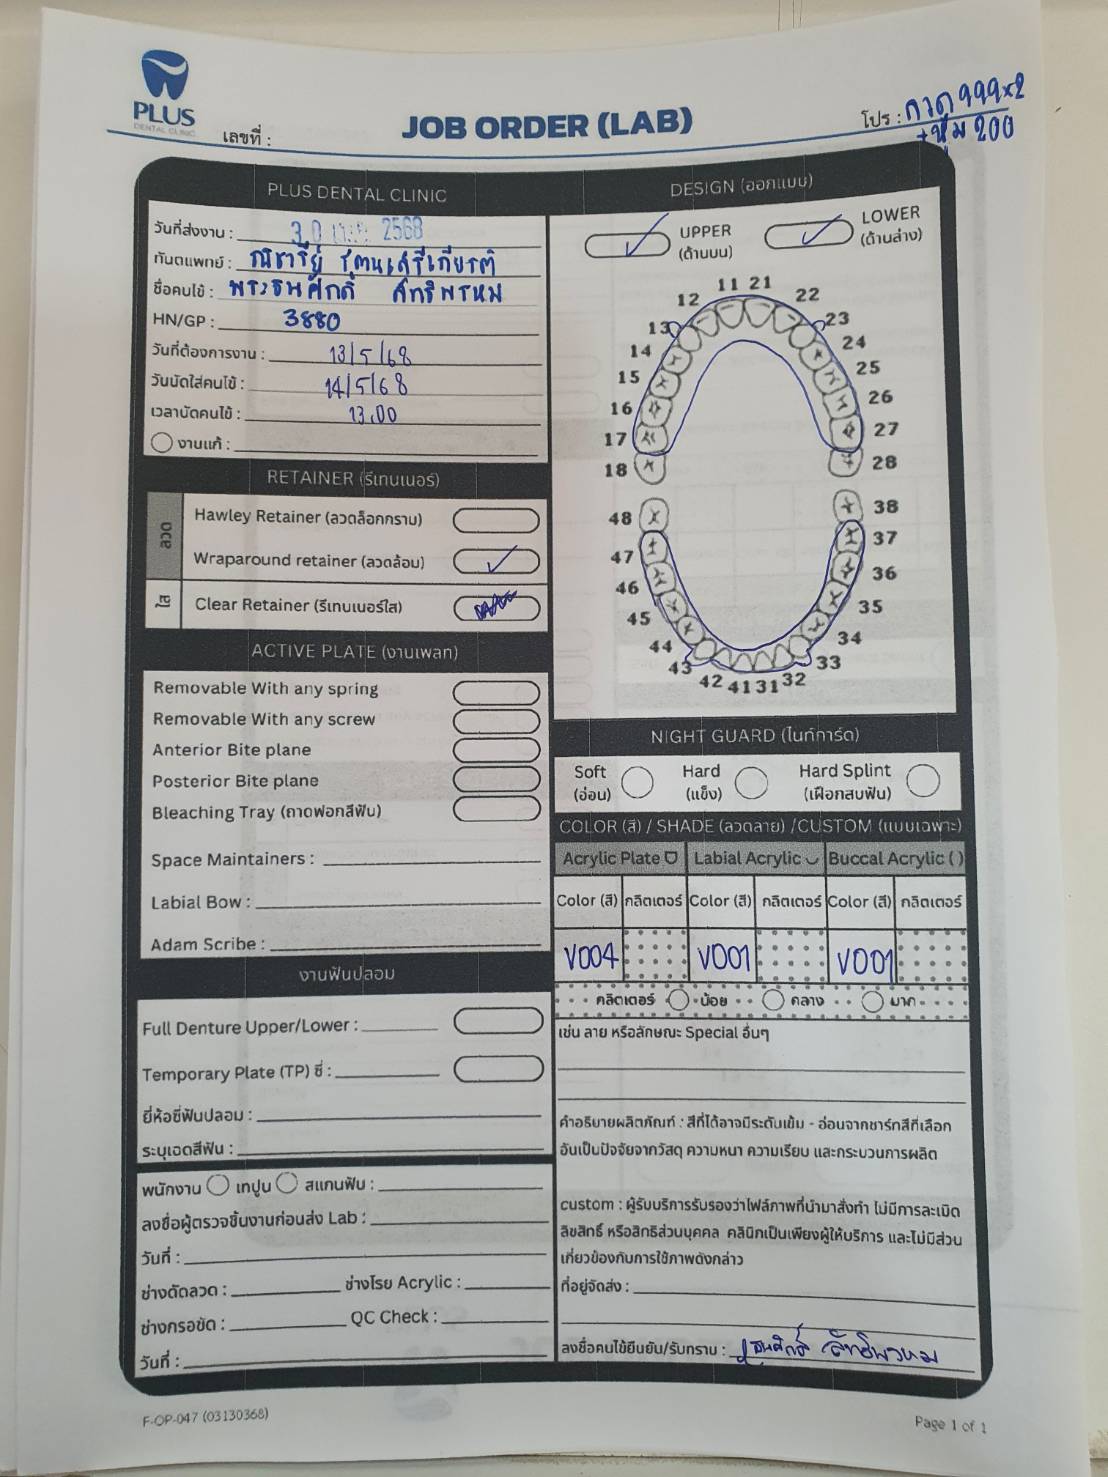 PLUS
DENTAL CLINIC
เลขที่ :
JOB ORDER (LAB)
โปร : ลวด 999x2
+หุ้ม 200
PLUS DENTAL CLINIC
วันที่ส่งงาน : 30 เม.ย. 2568
ทันตแพทย์ :
ชื่อคนไข้ :
HN/GP : 3880
วันที่ต้องการงาน : 13/5/68
วันนัดใส่คนไข้ : 14/5/68
เวลานัดคนไข้ : 13.00
งานแก้ :
RETAINER (รีเทนเนอร์)
ลวด
Hawley Retainer (ลวดล็อกกราม)
Wraparound retainer (ลวดล้อม)
ใส
Clear Retainer (รีเทนเนอร์ใส)
ACTIVE PLATE (งานเพลท)
Removable With any spring
Removable With any screw
Anterior Bite plane
Posterior Bite plane
Bleaching Tray (ถาดฟอกสีฟัน)
Space Maintainers :
Labial Bow :
Adam Scribe :
งานฟันปลอม
Full Denture Upper/Lower :
Temporary Plate (TP) ซี่ :
ยี่ห้อซี่ฟันปลอม :
ระบุเฉดสีฟัน :
พนักงาน เทปูน สแกนฟัน :
ลงชื่อผู้ตรวจชิ้นงานก่อนส่ง Lab :
วันที่ :
ช่างดัดลวด : ช่างโรย Acrylic :
ช่างกรอขัด : QC Check :
วันที่ :
DESIGN (ออกแบบ)
UPPER
(ด้านบน)
LOWER
(ด้านล่าง)
11 21
12 22
13 23
14 24
15 25
16 26
17 27
18 28
48 38
47 37
46 36
45 35
44 34
43 33
42 41 31 32
NIGHT GUARD (ไนท์การ์ด)
Soft
(อ่อน)
Hard
(แข็ง)
Hard Splint
(เฝือกสบฟัน)
COLOR (สี) / SHADE (ลวดลาย) /CUSTOM (แบบเฉพาะ)
Acrylic Plate Labial Acrylic Buccal Acrylic ( )
Color (สี) กลิตเตอร์ Color (สี) กลิตเตอร์ Color (สี) กลิตเตอร์
V004 V001 V001
กลิตเตอร์ น้อย กลาง มาก
เช่น ลาย หรือลักษณะ Special อื่นๆ
คำอธิบายผลิตภัณฑ์ : สีที่ได้อาจมีระดับเข้ม - อ่อนจากชาร์ทสีที่เลือก
อันเป็นปัจจัยจากวัสดุ ความหนา ความเรียบ และกระบวนการผลิต
custom : ผู้รับบริการรับรองว่าไฟล์ภาพที่นำมาสั่งทำ ไม่มีการละเมิด
ลิขสิทธิ์ หรือสิทธิส่วนบุคคล คลินิกเป็นเพียงผู้ให้บริการ และไม่มีส่วน
เกี่ยวข้องกับการใช้ภาพดังกล่าว
ที่อยู่จัดส่ง :
ลงชื่อคนไข้ยืนยัน/รับทราบ :
F-OP-047 (03130368)
Page 1 of 1